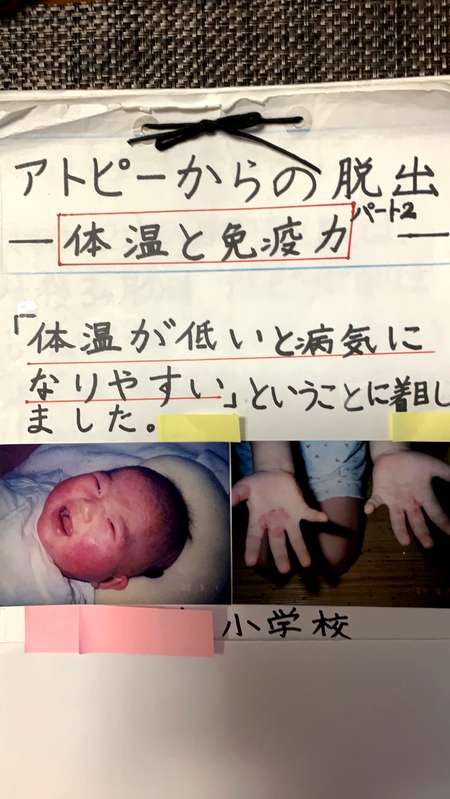 アトピーからの脱出
パート2
―体温と免疫力―
「体温が低いと病気に
なりやすい」ということに着目し
ました。
小学校